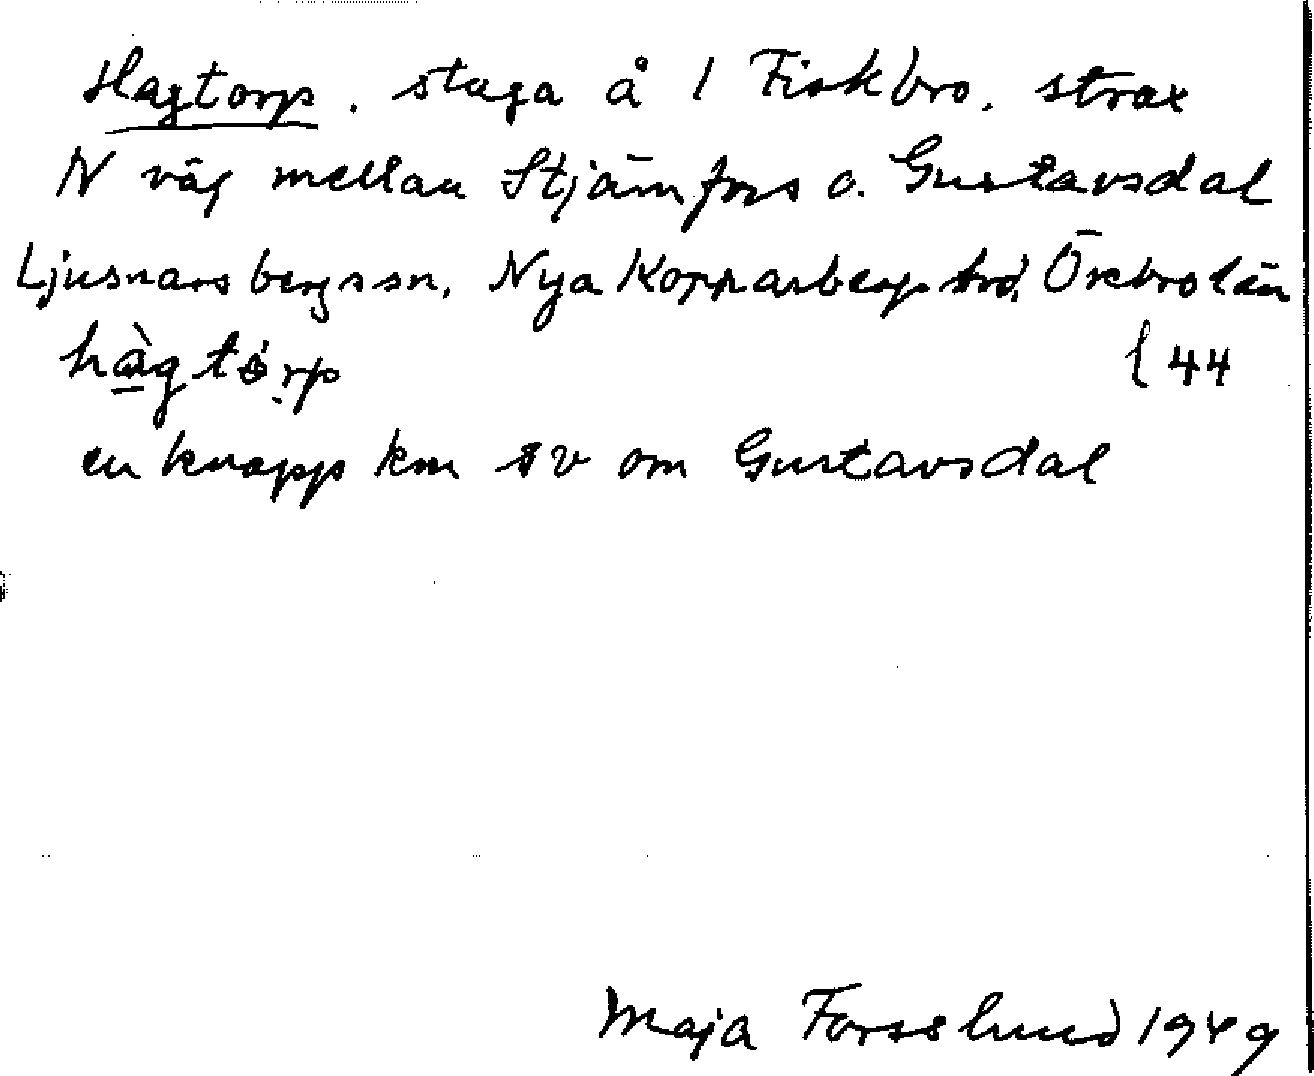 Hagtorp. stuga å 1 Fiskbro. strax
N väg mellan Stjärnfors o. Gustavsdal
Ljusnarsbergs sn, Nya Kopparbergs hd, Örebro län
hàgtórp {44
en knapp km sv om Gustavsdal
Maja Forsslund 1949